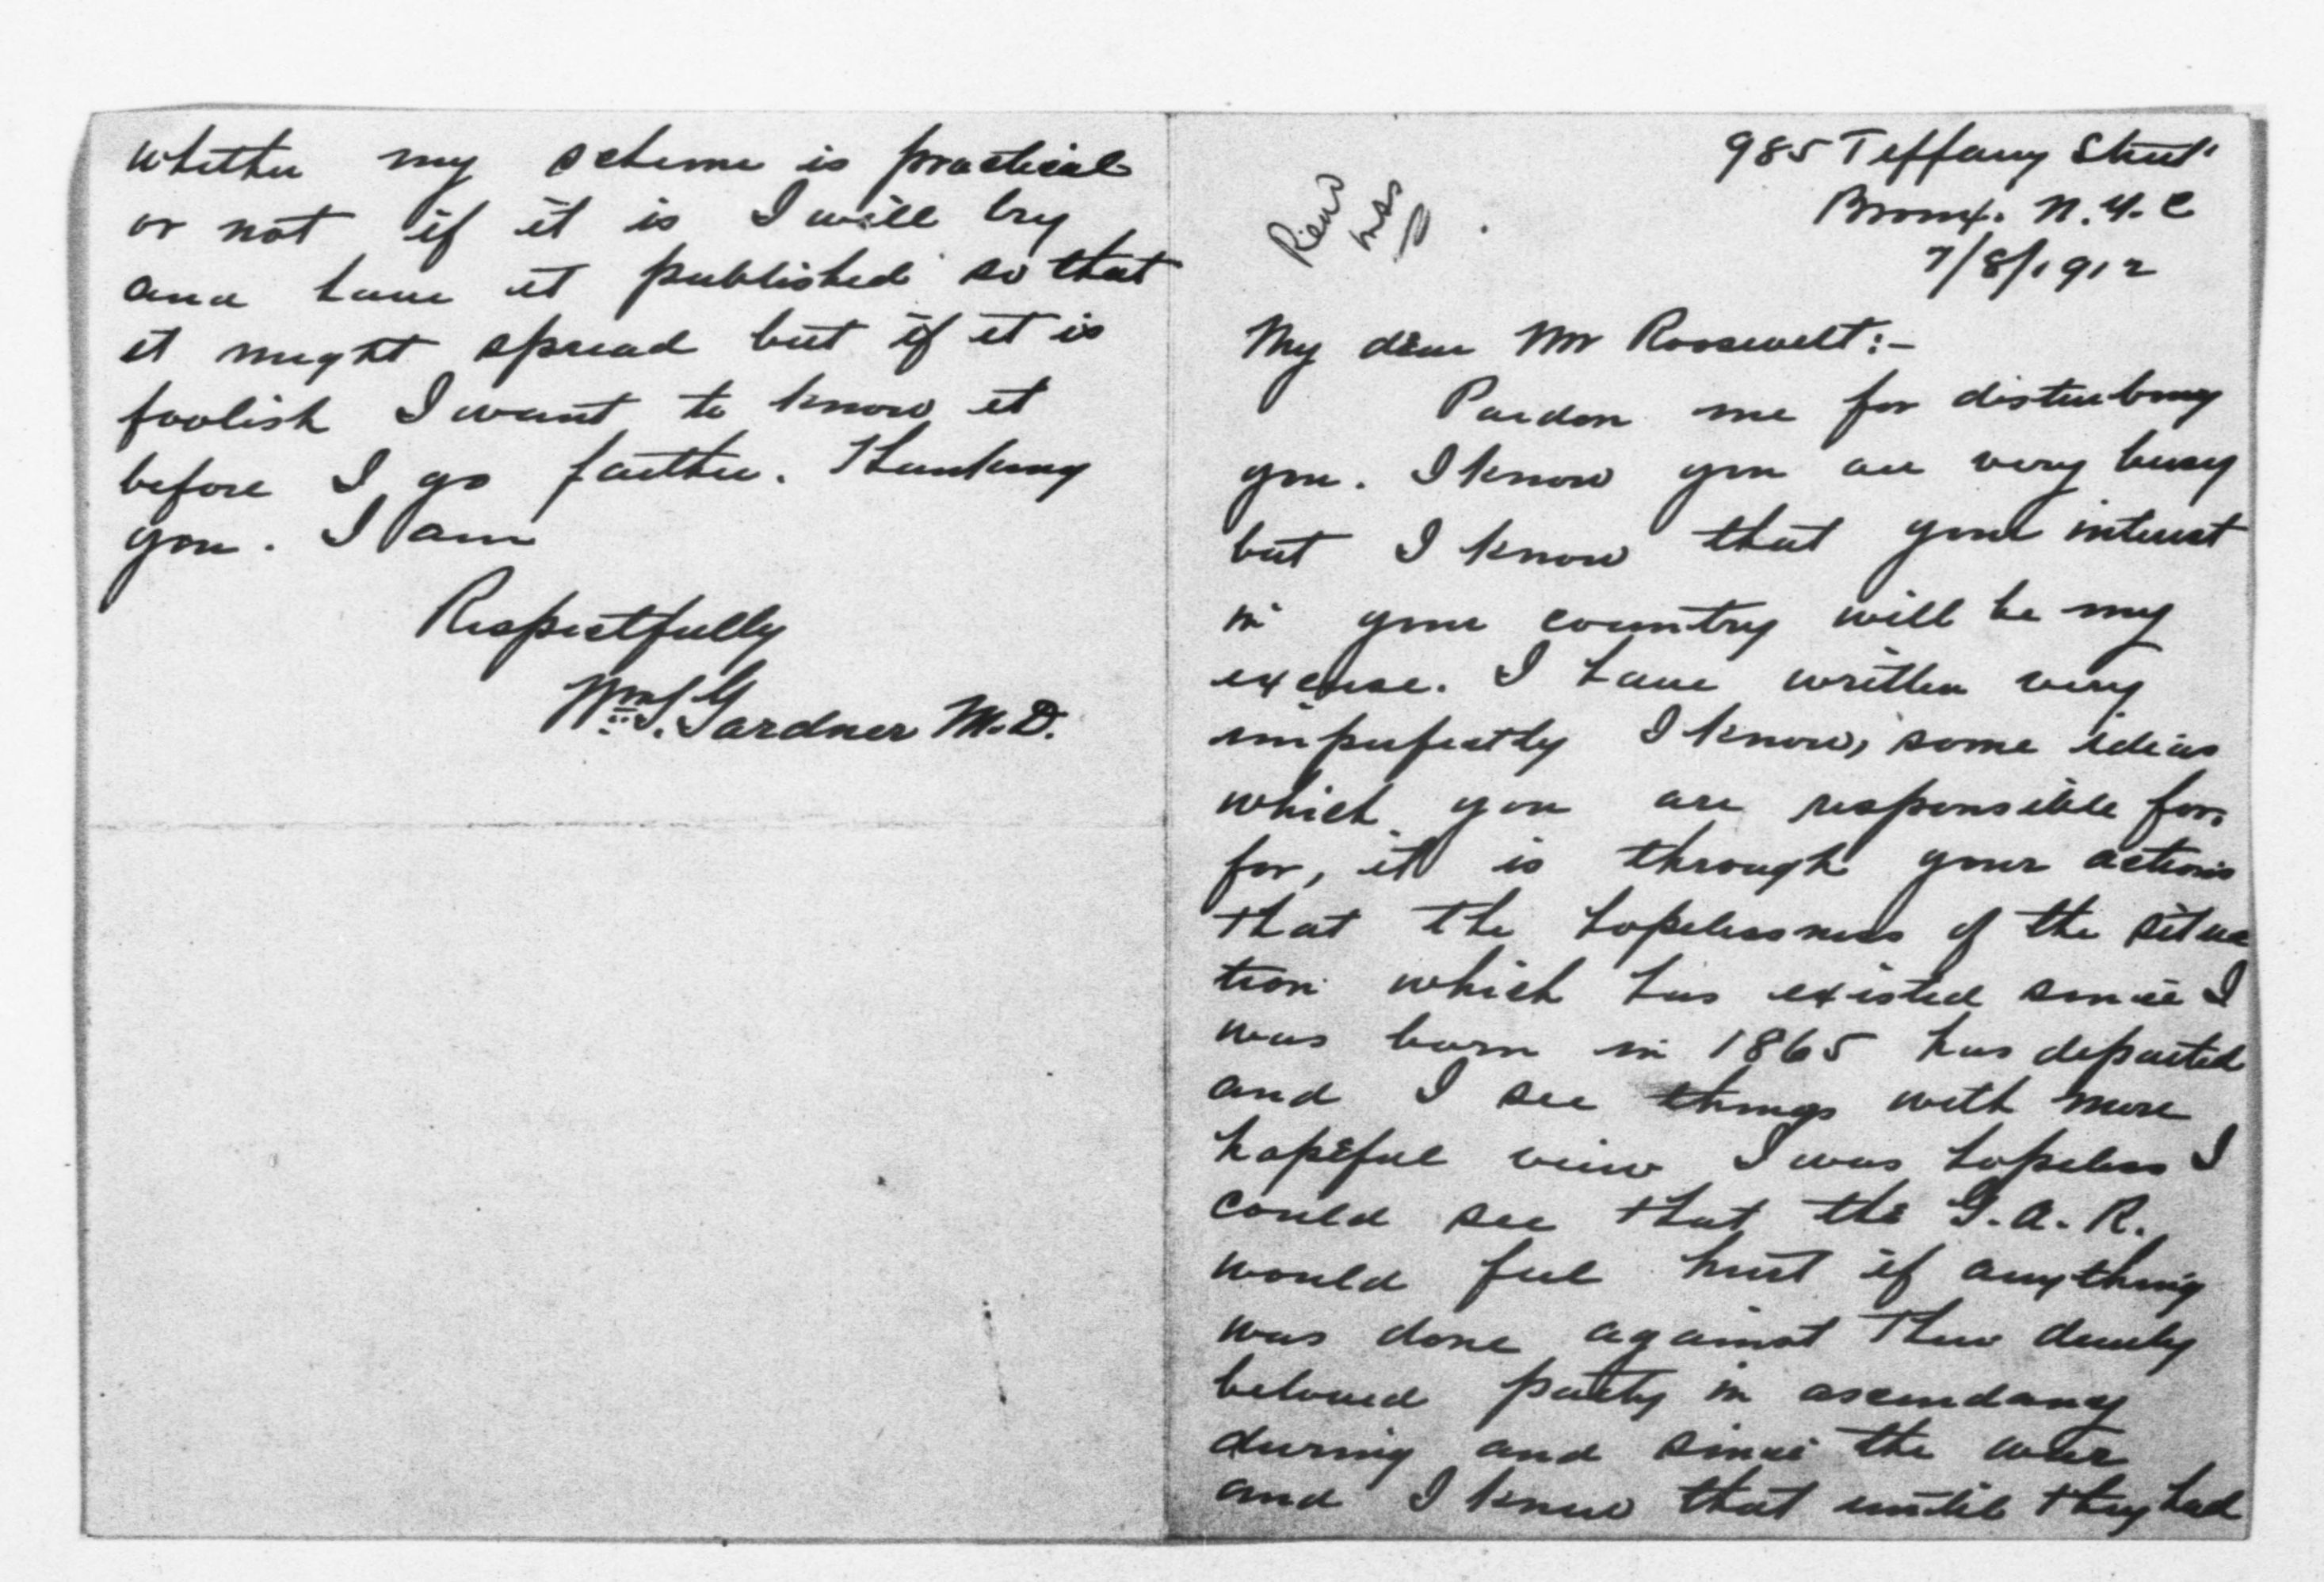 985 Teffany Street
Bronx. N.Y.C
7/8/1912
My dear Mr Roosevelt:-
Pardon me for disturbing
you. I know you are very busy
but I know that your interest
in your country will be my
excuse. I have written very
imperfectly I know, some ideas
which you are responsible for,
for, it is through your actions
that the hopelessness of the situa
tion which has existed since I
was born in 1865 has departed
and I see things with more
hopeful view I was hopeless I
could see that the G.A.R.
would feel hurt if anything
was done against their dearly
beloved party in ascendancy
during and since the war
and I knew that until they had
whether my scheme is practical
or not if it is I will try
and have it published so that
it might spread but if it is
foolish I want to know it
before I go farther. Thanking
you. I am
Respectfully
Wm S. Gardner M.D.